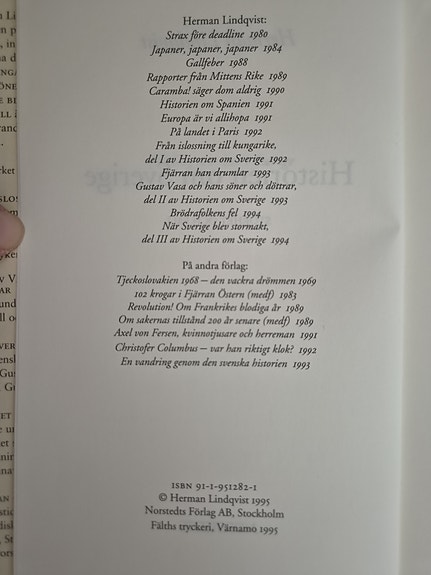 Herman Lindqvist:
Strax före deadline 1980
Japaner, japaner, japaner 1984
Gallfeber 1988
Rapporter från Mittens Rike 1989
Caramba! säger dom aldrig 1990
Historien om Spanien 1991
Europa är vi allihopa 1991
På landet i Paris 1992
Från islossning till kungarike,
del I av Historien om Sverige 1992
Fjärran han drumlar 1993
Gustav Vasa och hans söner och döttrar,
del II av Historien om Sverige 1993
Brödrafolkens fel 1994
När Sverige blev stormakt,
del III av Historien om Sverige 1994
På andra förlag:
Tjeckoslovakien 1968 – den vackra drömmen 1969
102 krogar i Fjärran Östern (medf) 1983
Revolution! Om Frankrikes blodiga år 1989
Om sakernas tillstånd 200 år senare (medf) 1989
Axel von Fersen, kvinnotjusare och herreman 1991
Christofer Columbus – var han riktigt klok? 1992
En vandring genom den svenska historien 1993
ISBN 91-1-951282-1
© Herman Lindqvist 1995
Norstedts Förlag AB, Stockholm
Fälths tryckeri, Värnamo 1995